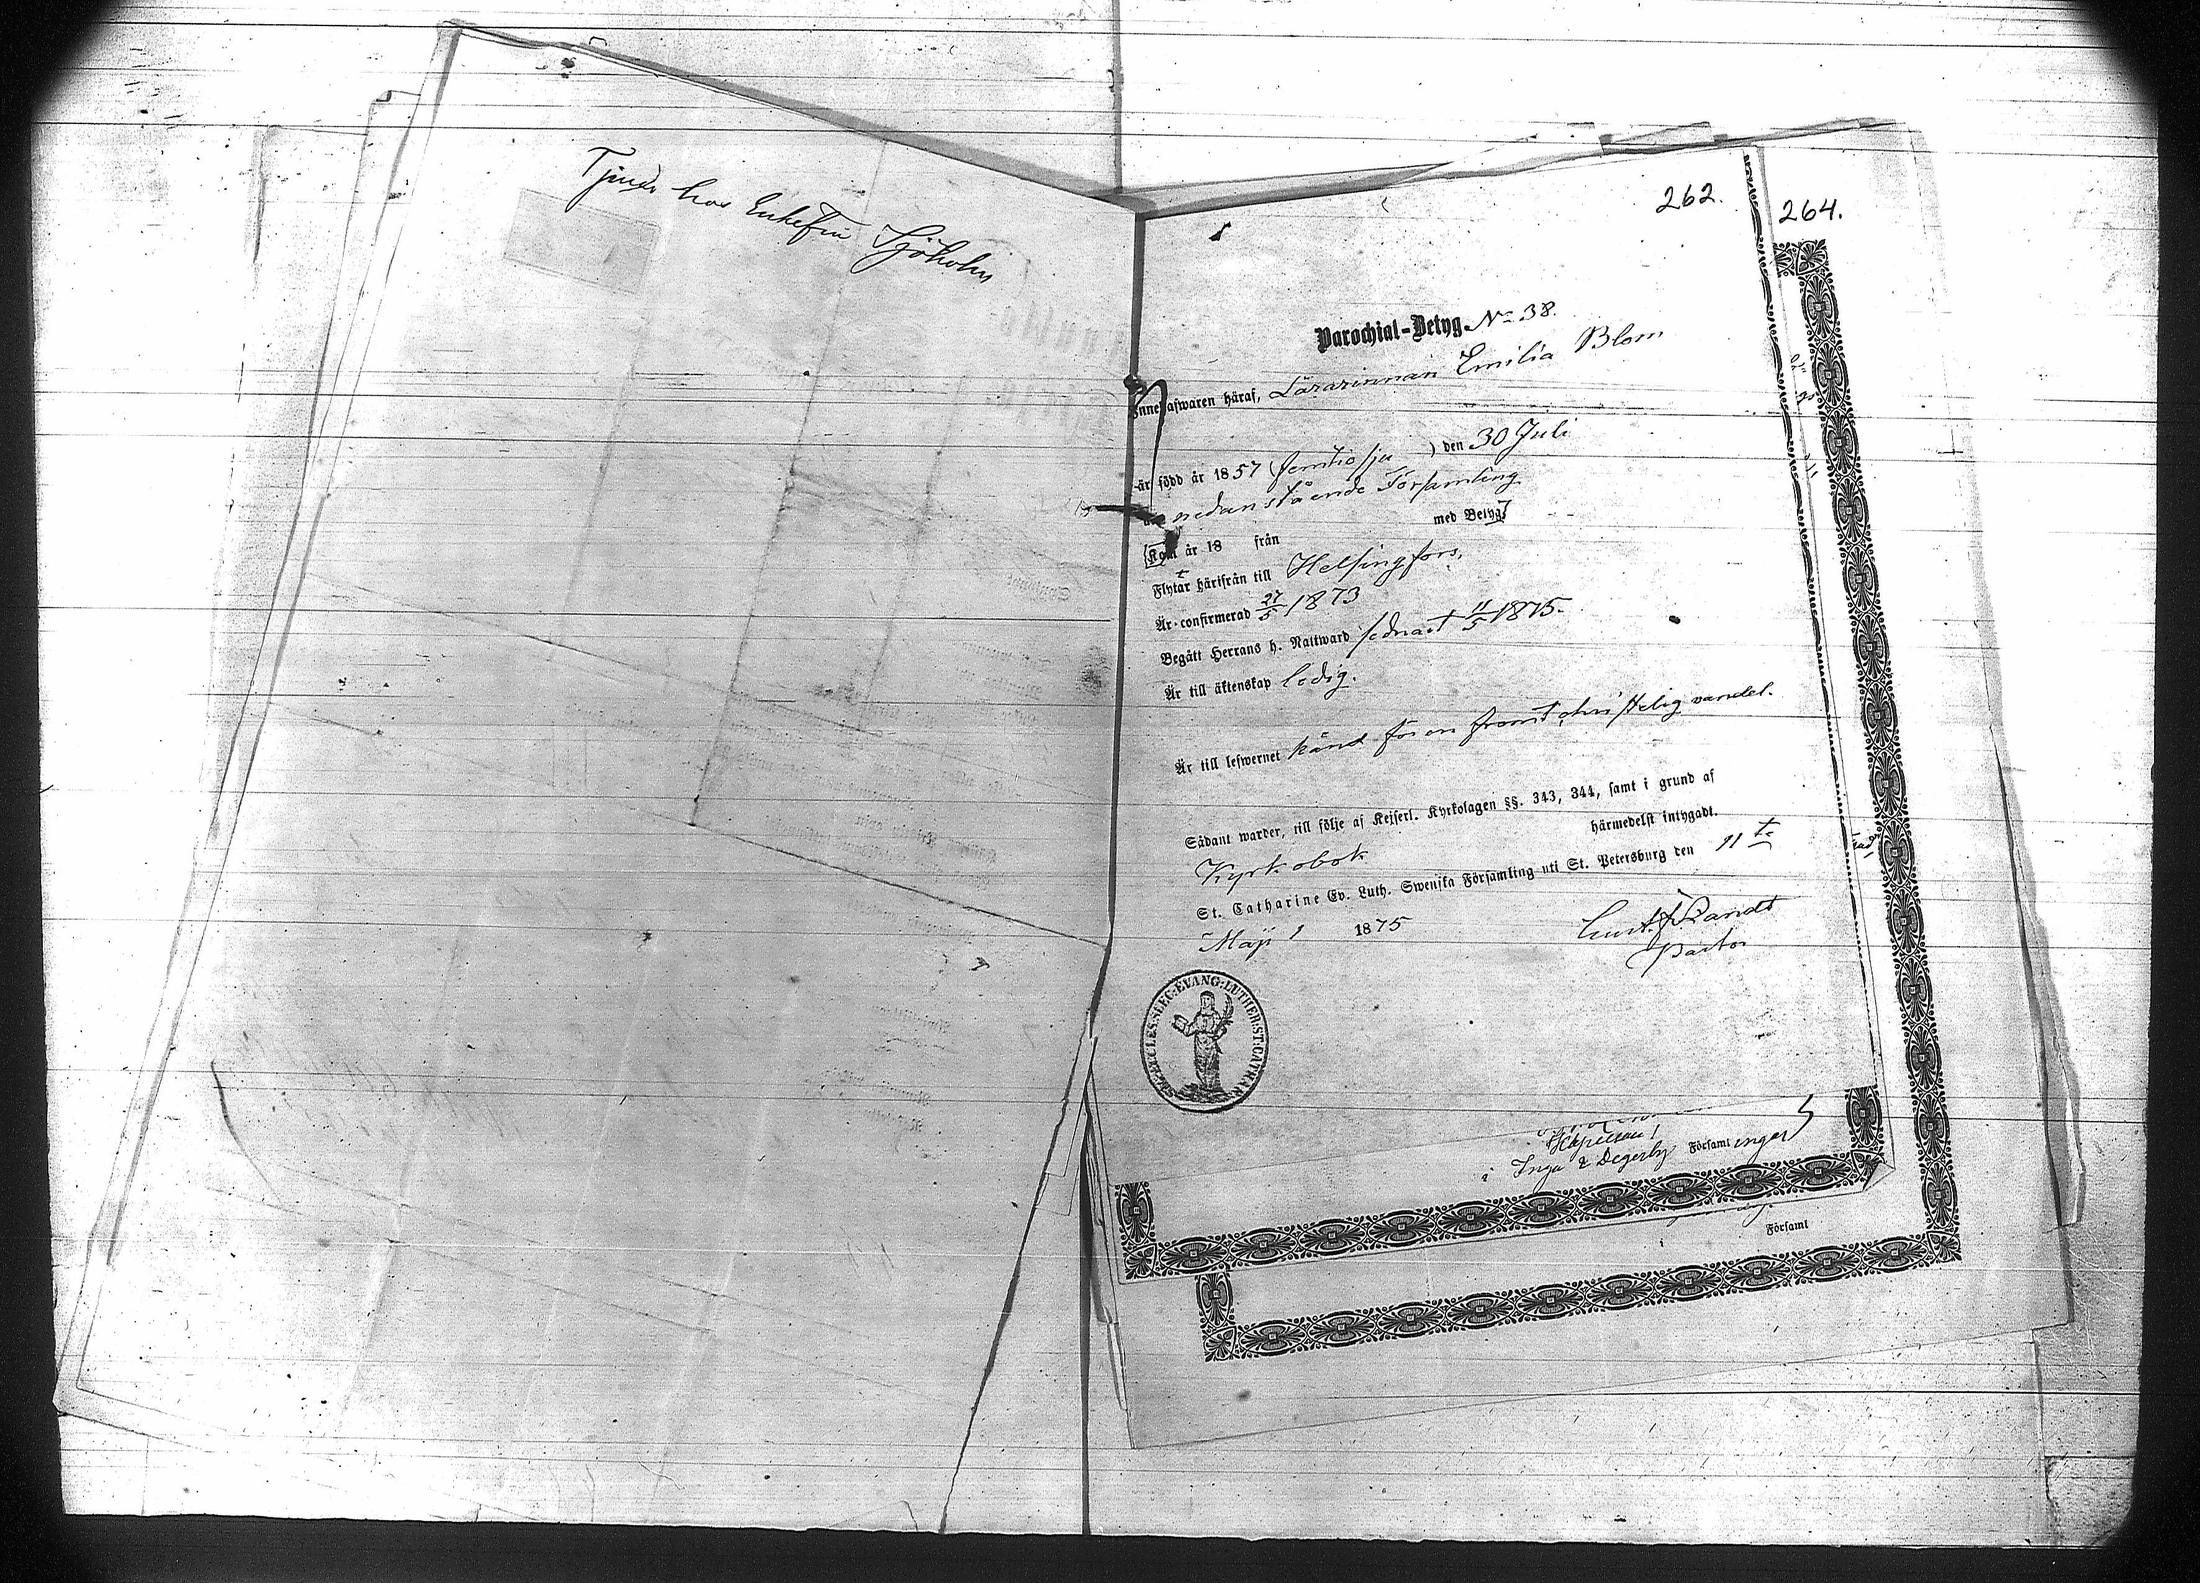 Tjenar hos Enkefru Sjöholm
262.
264.
Parochial-Betyg. No 38.
Innehafwaren häraf, Lärarinnan Emilia Blom
är född år 1857 (femtiosju) den 30 Juli
nedanstående Församling
[Kom år 18 från med Betyg]
Flytar härifrån till Helsingfors.
Är confirmerad 27/5 1873
Begått Herrans h. Nattward sednast 11/5 1875.
Är till äktenskap ledig.
Är till lefwernet känd för en from o. christelig vandel.
Sådant warder, till följe af Kejserl. Kyrkolagen §§. 343, 344, samt i grund af
Kyrkobok härmedelst intygadt.
St. Catharine Ev. Luth. Swenska Församling uti St. Petersburg den 11te
Maji 1875
Pastor
EVANG: LUTHER: ST: CATHAR
i Inga & Degerby Församlingar
i Församl